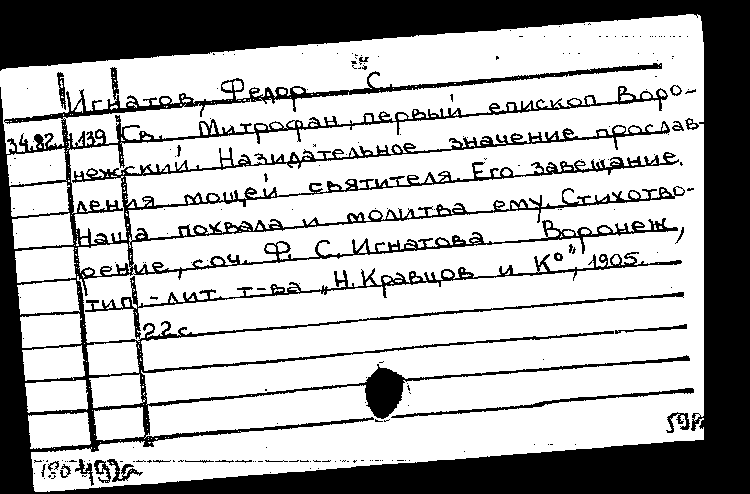 Игнатов, Федор С.
34.82.4.139 Св. Митрофан, первый епископ Воро-
нежский. Назидательное значение прослав-
ления мощей святителя. Его завещание.
Наша похвала и молитва ему. Стихотво-
рение, соч. Ф. С. Игнатова. Воронеж,
тип.-лит. т-ва „Н. Кравцов и К°", 1905.
22с.